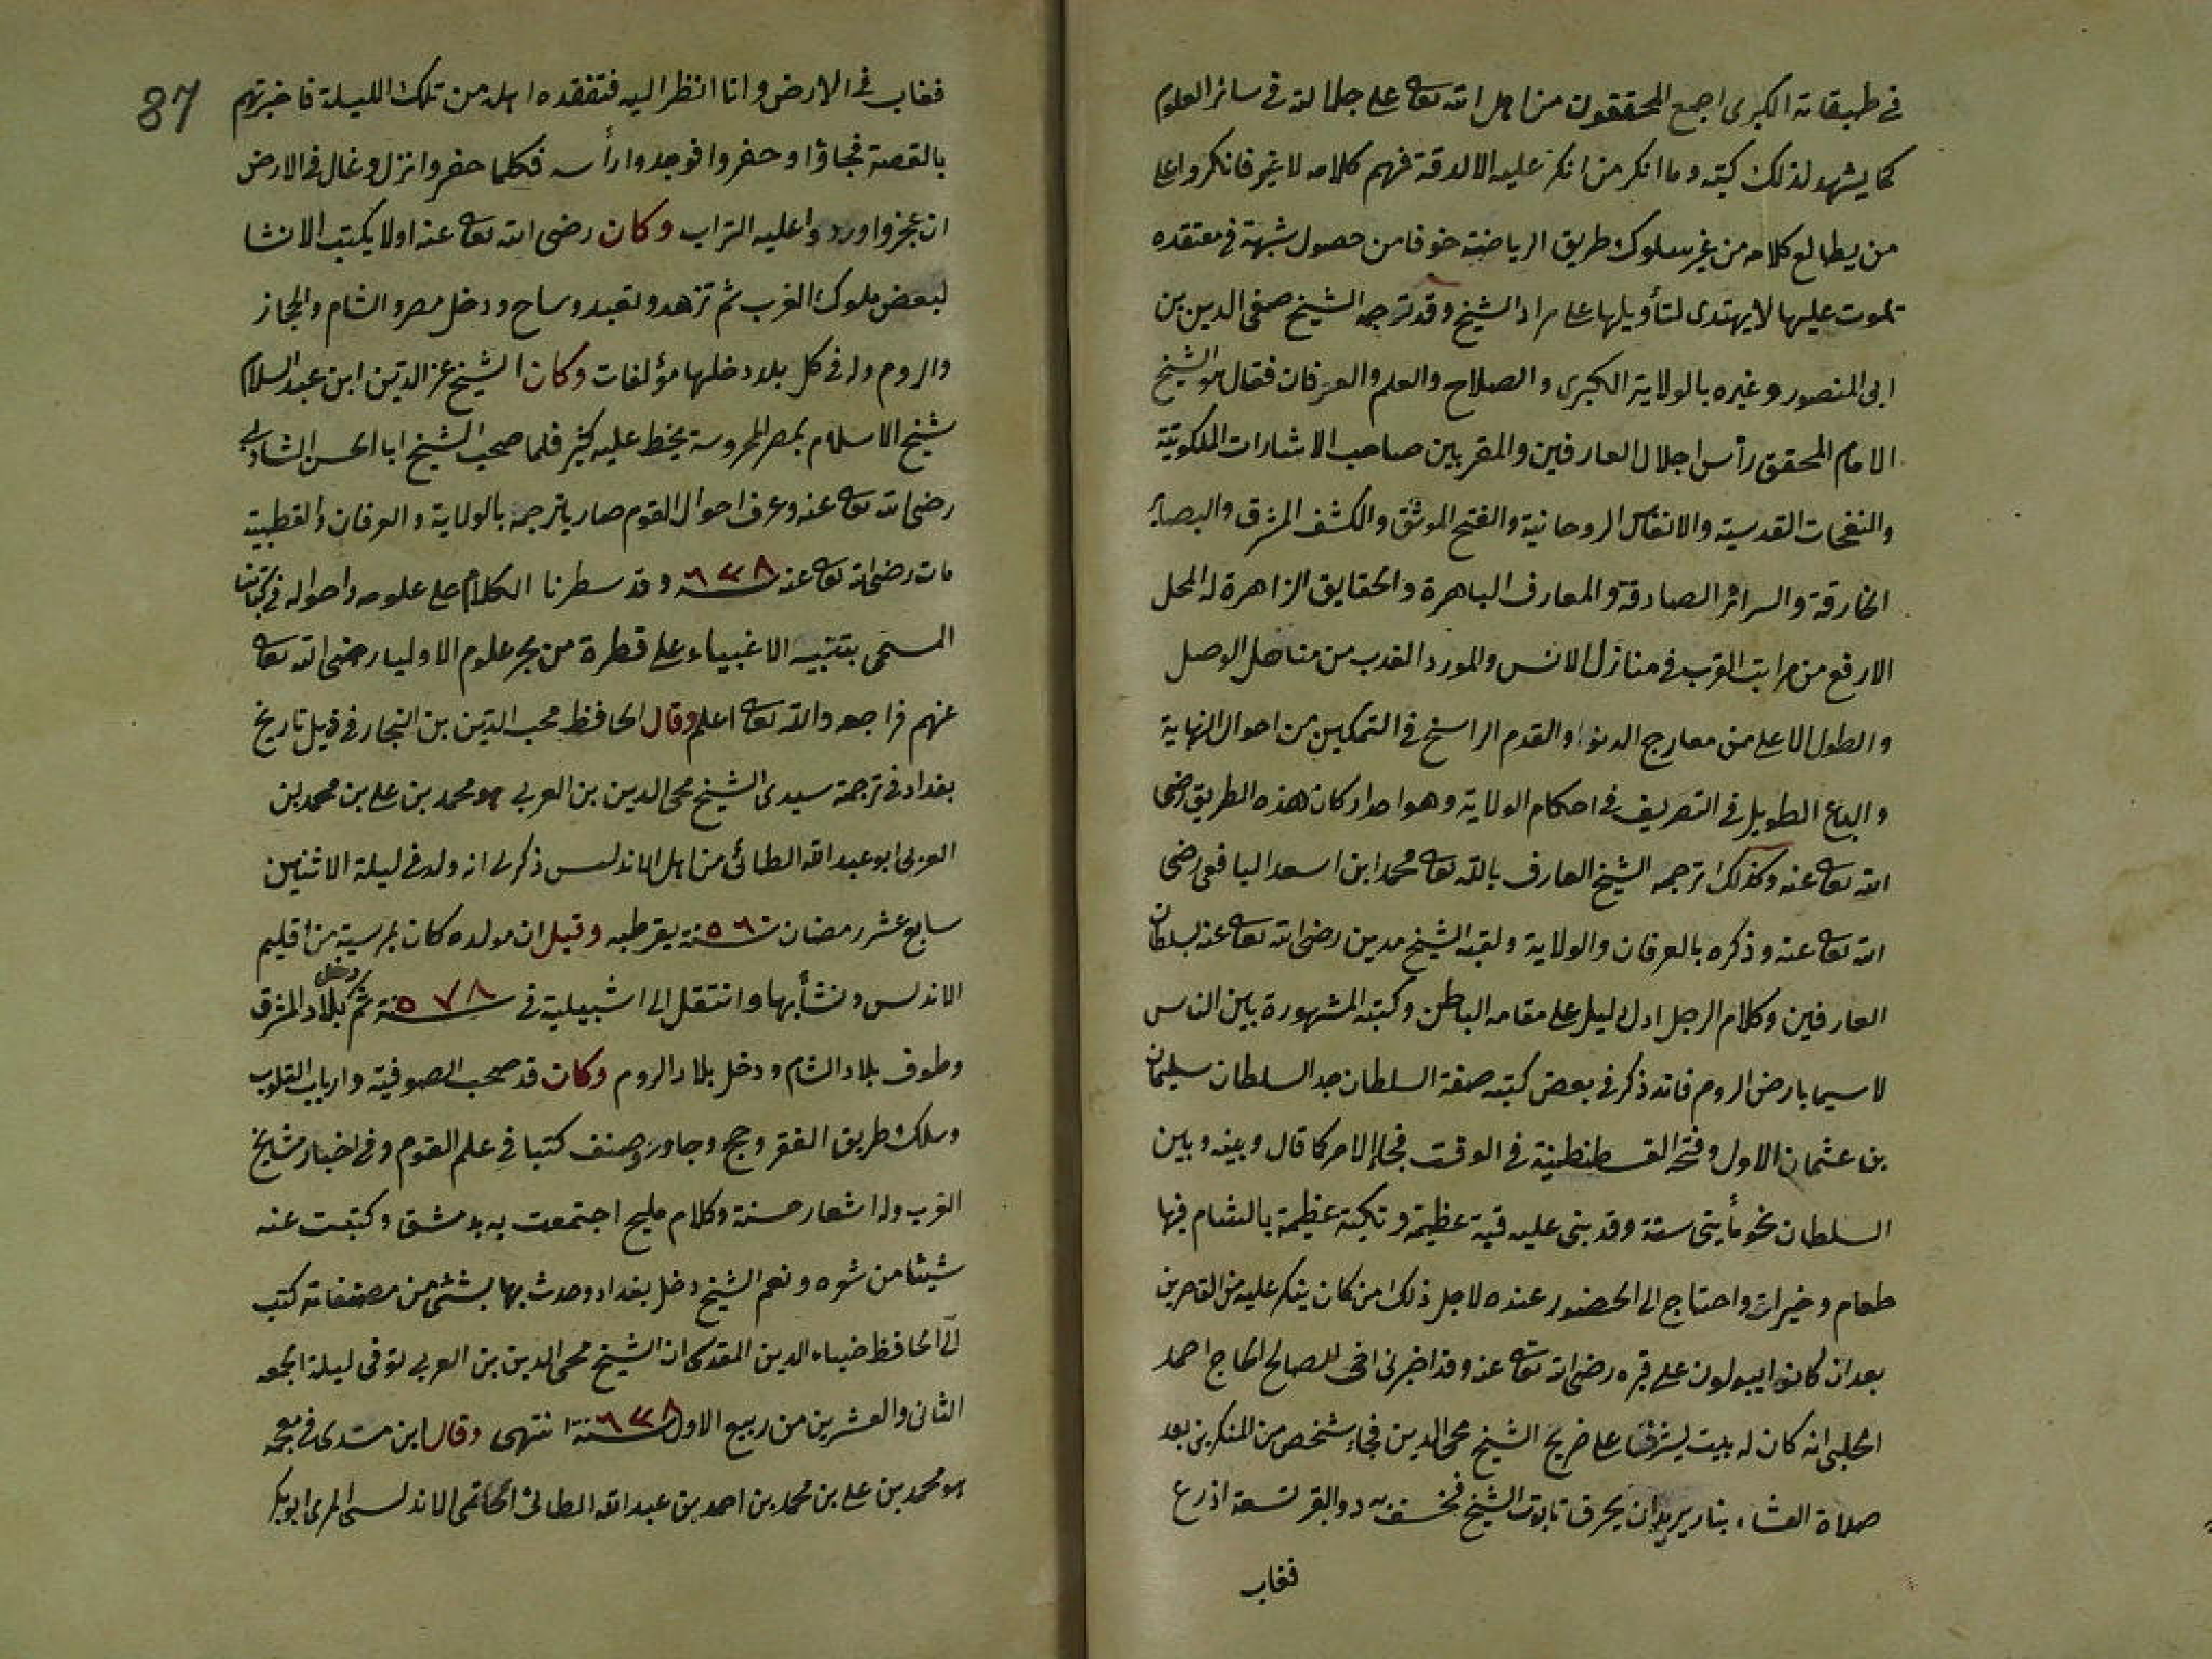 في طبقاته الكبرى اجمع المحققون من اهل الله تعا على جلالته في سائر العلوم
كما يشهد لذلك كتبه وما انكر من انكر عليه الا لدقة فهم كلامه لا غير فانكروا على
من يطالع كلامه من غير سلوك طريق الرياضة خوفا من حصول شبهة في معتقده
يموت عليها لا يهتدى لتأويلها على مراد الشيخ وقد ترجمه الشيخ صفي الدين بن
ابي المنصور وغيره بالولاية الكبرى والصلاح والعلم والعرفان فقال هو الشيخ
الامام المحقق رأس اجلال العارفين والمقربين صاحب الاشارات الملكوتية
والنفحات القدسية والانفاس الروحانية والفتح الموثق والكشف المشرق والبصائر
الخارقة والسرائر الصادقة والمعارف الباهرة والحقايق الزاهرة له المحل
الارفع من مراتب القرب في منازل الانس والمورد العذب من مناهل الوصل
والطول الاعلى من معارج الدنو والقدم الراسخ في التمكين من احوال النهاية
والباع الطويل في التصريف في احكام الولاية وهو احد اركان هذه الطريق رضى
الله تعا عنه وكذلك ترجمه الشيخ العارف بالله تعا محمد ابن اسعد اليافعي رضى
الله تعا عنه وذكره بالعرفان والولاية ولقبه الشيخ مدين رضى الله تعا عنه بسلطان
العارفين وكلام الرجل ادل دليل على مقامه الباطن وكتبه المشهورة بين الناس
لا سيما بارض الروم فانه ذكر في بعض كتبه صفة السلطان جد السلطان سليمان
بن عثمان الاول وفتحه القسطنطينة في الوقت فجاء الامر كما قال وبينه وبين
السلطان نحو مأيتى سنة وقد بنى عليه قبة عظيمة وتكية عظيمة بالشام فيها
طعام وخيرات واحتاج الى الحضور عنده لاجل ذلك من كان ينكر عليه من القاصرين
بعد ان كانوا يبولون على قبره رضى الله تعا عنه وقد اخبرنى اخى الصالح الحاج احمد
الحلبى انه كان له بيت يشرف على ضريح الشيخ محى الدين فجاء شخص من المنكرين بعد
صلاة العشاء بنار يريد ان يحرق تابوت الشيخ فخسف به دو القبر تسعة اذرع
فغاب
87
فغاب في الارض وانا انظر اليه فتفقده اهله من تلك الليلة فاخبرتهم
بالقصة فجاؤا وحفروا فوجدوا رأسه فكلما حفروا نزل وغال في الارض
ان عجزوا وردوا عليه التراب وكان رضى الله تعا عنه اولا يكتب الانشا
لبعض ملوك الغرب ثم تزهد وتعبد وساح ودخل مصر والشام والحجاز
والروم وله في كل بلد دخلها مؤلفات وكان الشيخ عز الدين ابن عبد السلام
شيخ الاسلام بمصر المحروسة يخط عليه كثير فلما صحب الشيخ ابا الحسن الشاذلي
رضى الله تعا عنه وعرف احوال القوم صار يترجمه بالولاية والعرفان والقطبية
مات رضى الله تعا عنه سنة ٦٣٨ وقد سطرنا الكلام على علومه واحواله في كتابنا
المسمى بتنبيه الاغبياء على قطرة من بحر علوم الاوليا رضى الله تعا
عنهم فراجعه والله تعا اعلم وقال الحافظ محب الدين بن النجار في ذيل تاريخ
بغداد في ترجمة سيدى الشيخ محى الدين بن العربي هو محمد بن على بن محمد بن
العربى ابو عبد الله الطائى من اهل الاندلس ذكر لى انه ولد في ليلة الاثنين
سابع عشر رمضان سنة ٥٦٠ بقرطبه وقيل ان مولده كان بمرسية من اقليم
الاندلس ونشأ بها وانتقل الى اشبيلية في سنة ٥٧٨ ثم دخل بلاد المشرق
وطوف بلاد الشام ودخل بلاد الروم وكان قد صحب الصوفية وارباب القلوب
وسلك طريق الفقر وحج وجاور وصنف كتبا في علم القوم وفي اخبار مشايخ
الغرب وله اشعار حسنة وكلام مليح اجتمعت به بدمشق وكتبت عنه
شيئا من شعره ونعم الشيخ دخل بغداد وحدث بها بشئ من مصنفاته كتب
الى الحافظ ضياء الدين المقدسى ان الشيخ محى الدين بن العربي توفى ليلة الجمعه
الثانى والعشرين من ربيع الاول سنة ٦٣٨ انتهى وقال ابن مسدى في معجمه
هو محمد بن على بن محمد بن احمد بن عبد الله الطائى الحاتمى الاندلسى المرسى ابو بكر